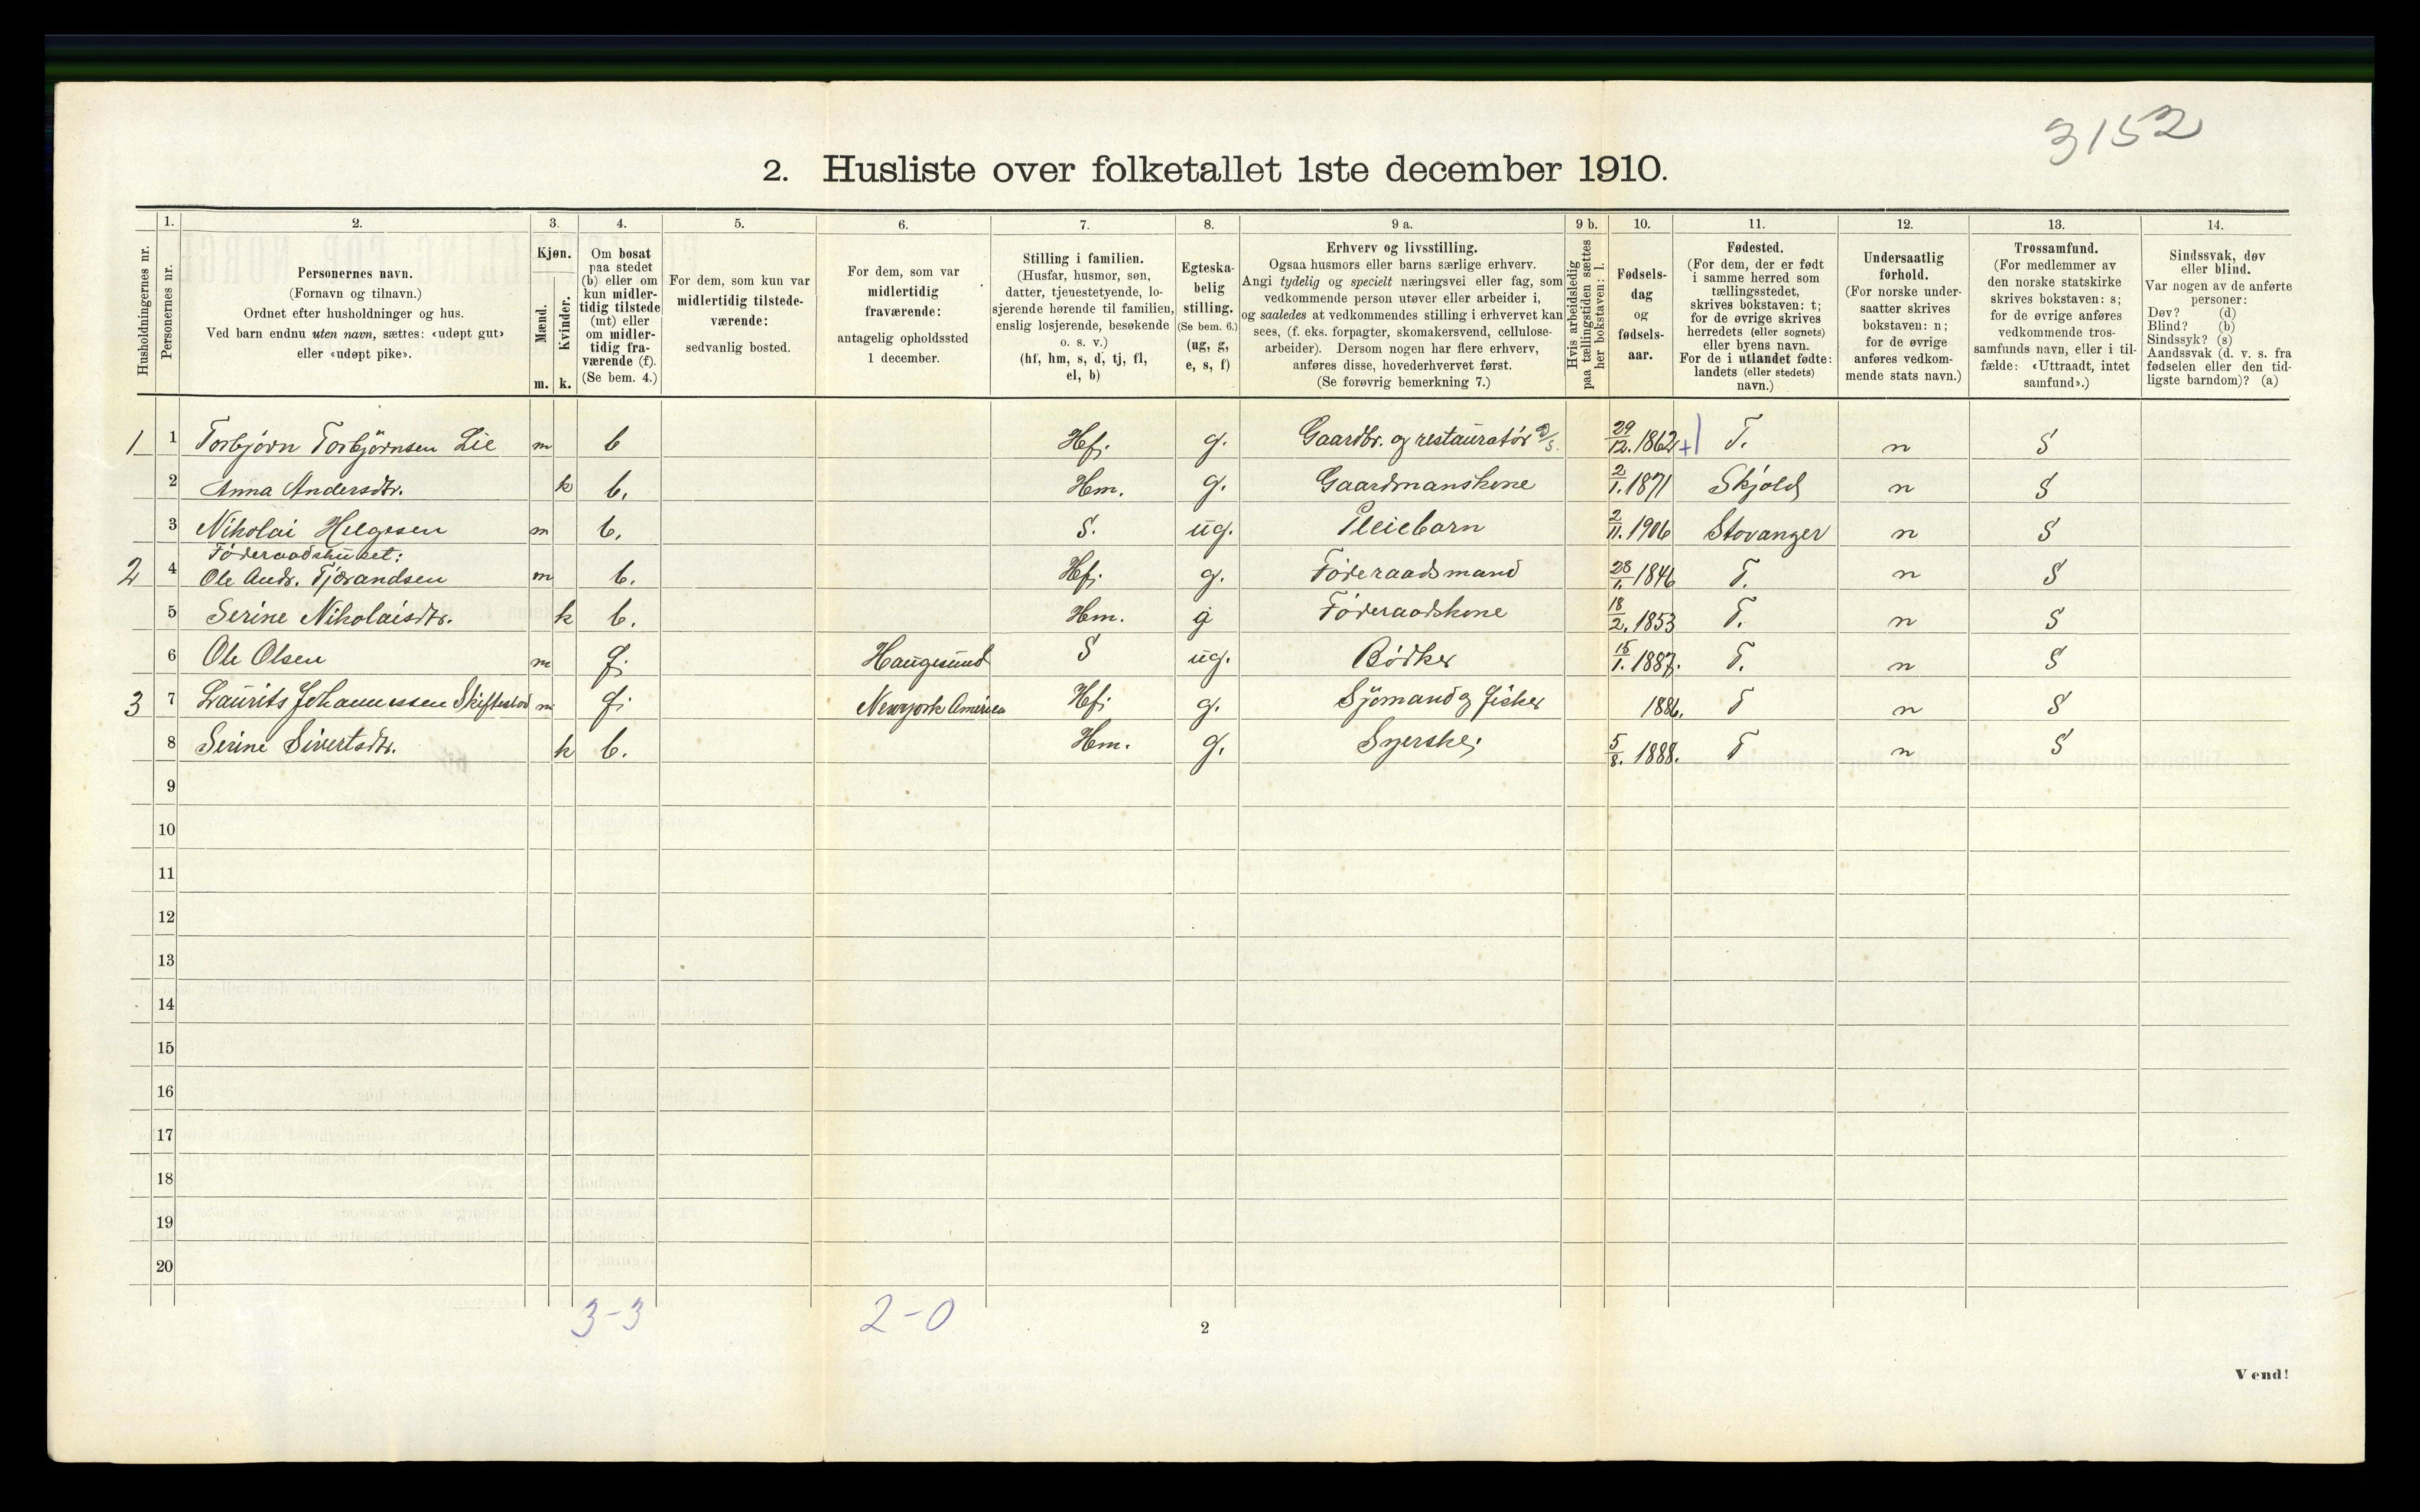 3152
2. Husliste over folketallet 1ste december 1910.
Husholdningernes nr.
1.
Personernes nr.
2.
Personernes navn.
(Fornavn og tilnavn.)
Ordnet efter husholdninger og hus.
Ved barn endnu uten navn, sættes: «udøpt gut»
eller «udøpt pike».
3.
Kjøn.
Mænd.
Kvinder.
m. k.
4.
Om bosat
paa stedet
(b) eller om
kun midler-
tidig tilstede
(mt) eller
om midler-
tidig fra-
værende (f).
(Se bem. 4.)
5.
For dem, som kun var
midlertidig tilstede-
værende:
sedvanlig bosted.
6.
For dem, som var
midlertidig
fraværende:
antagelig opholdssted
1 december.
7.
Stilling i familien.
(Husfar, husmor, søn,
datter, tjenestetyende, lo-
sjerende hørende til familien,
enslig losjerende, besøkende
o. s. v.)
(hf, hm, s, d, tj, fl,
el, b)
8.
Egteska-
belig
stilling.
(Se bem. 6.)
(ug, g,
e, s, f)
9 a.
Erhverv og livsstilling.
Ogsaa husmors eller barns særlige erhverv.
Angi tydelig og specielt næringsvei eller fag, som
vedkommende person utøver eller arbeider i,
og saaledes at vedkommendes stilling i erhvervet kan
sees, (f. eks. forpagter, skomakersvend, cellulose-
arbeider). Dersom nogen har flere erhverv,
anføres disse, hovederhvervet først.
(Se forøvrig bemerkning 7.)
9 b.
Hvis arbeidsledig
paa tællingstiden sættes
her bokstaven: l.
10.
Fødsels-
dag
og
fødsels-
aar.
11.
Fødested.
(For dem, der er født
i samme herred som
tællingsstedet,
skrives bokstaven: t;
for de øvrige skrives
herredets (eller sognets)
eller byens navn.
For de i utlandet fødte:
landets (eller stedets)
navn.)
12.
Undersaatlig
forhold.
(For norske under-
saatter skrives
bokstaven: n;
for de øvrige
anføres vedkom-
mende stats navn.)
13.
Trossamfund.
(For medlemmer av
den norske statskirke
skrives bokstaven: s;
for de øvrige anføres
vedkommende tros-
samfunds navn, eller i til-
fælde: «Uttraadt, intet
samfund».)
14.
Sindssvak, døv
eller blind.
Var nogen av de anførte
personer:
Døv? (d)
Blind? (b)
Sindssyk? (s)
Aandssvak (d. v. s. fra
fødselen eller den tid-
ligste barndom)? (a)
1 1 Torbjørn Torbjørnsen Lie m b Hf. g. Gaardbr. og restauratør 29/12.1862 T. n S
2 Anna Andersdtr. k b. Hm. g. Gaardmanskone 2/1.1871 Skjold n S
3 Nikolai Helgesen m b. S. ug. Pleiebarn 2/11.1906 Stavanger n S
Føderaadshuset:
2 4 Ole Andr. Tjørandsen m b. Hf. g. Føderaadsmand 28/1.1846 T. n S
5 Serine Nikolaisdtr. k b. Hm. g Føderaadskone 18/2.1853 T. n S
6 Ole Olsen m f. Haugesund S ug. Bødker 15/1.1887. T. n S
3 7 Laurits Johannessen Skiftestad m f. Newyork America Hf. g. Sjömand og fisker 1886. T n S
8 Serine Sivertsdtr. k b. Hm. g. Syerske; 5/8. 1888. T n S
9
10
11
12
13
14
15
16
17
18
19
20
3-3 2-0
2
Vend!